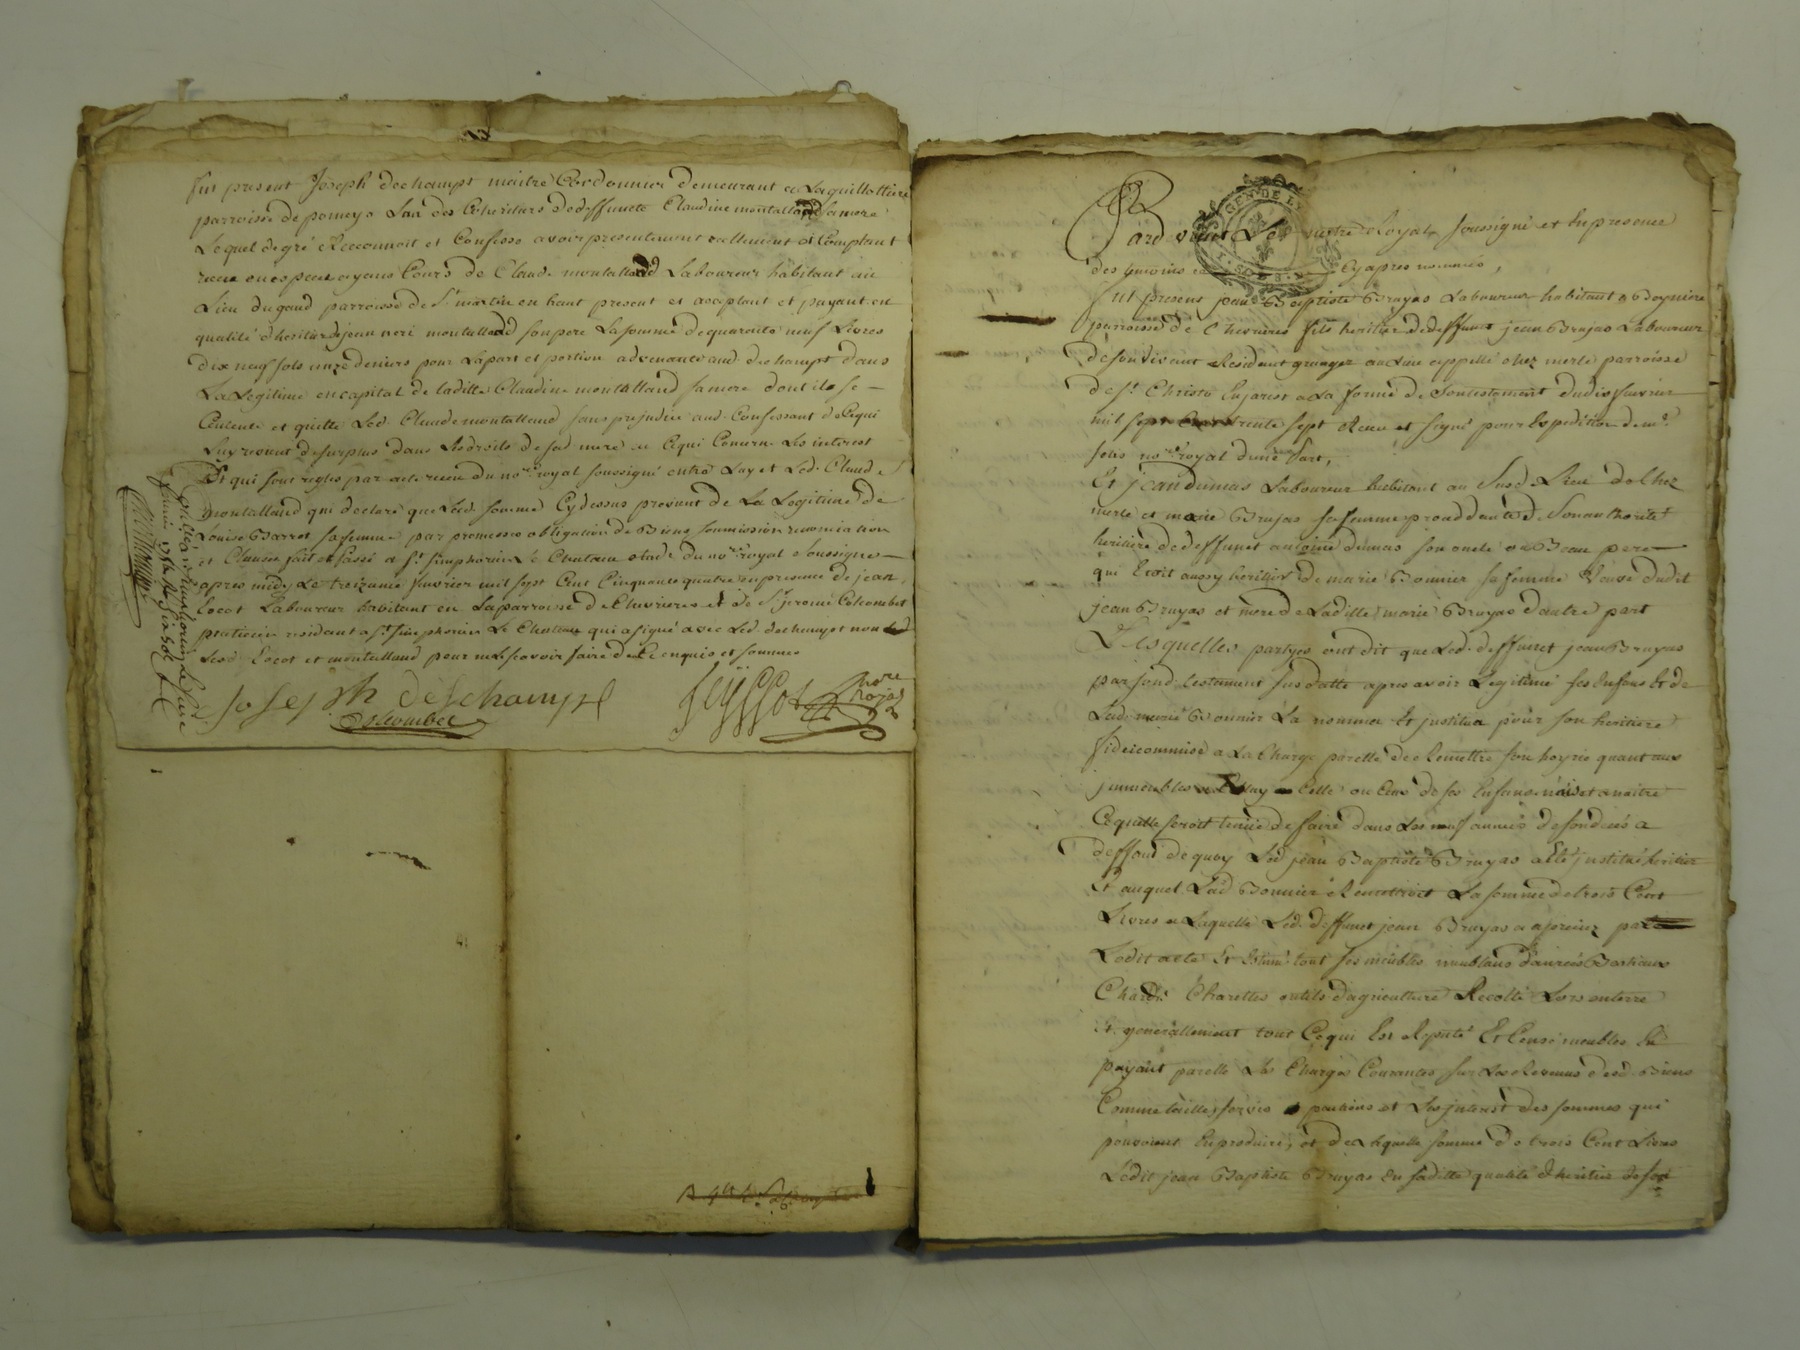 fut present Joseph dechampt maitre Cordonnier demeurant a Laguillottiere
parroisse de pomeys Lun des Coheritiers de deffuncte Claudine montalland sa mere
Lequel de gré Reconnoit et Confesse avoir presentement reellement et Comptant
receu en espece ayant Cours de Claude montalland Laboureur habitant au
Lieu du gand parroisse de St martin en haut present et acceptant et payant en
qualité d'heritier de jean neri montalland son pere La somme de quarante neuf Livres
dix neuf sols onze deniers pour La part et portion advenante aud. dechampt dans
La Legitime en capital de laditte Claudine montalland sa mere dont il se
Contente et quitte Led. Claude montalland sans prejudice aud. Confessant de Cequi
Luy revient de surplus dans Les droits de sad mere ou Cequi Concerne Les interest
Et qui sont regles par acte receu du nore royal soussigné entre Luy et Led. Claude
montalland qui declare que Lesd. somme Cy dessus provient de La Legitime de
Louise Barrot sa femme par promesse obligation de Biens soummission renonciation
et Clauses fait et passé a St. simphorien Le Chateau etude du nore royal soussigné
apres midy Le treizieme fevrier mil sept Cent Cinquante quatre en presence de jean
Locot Laboureur habitant en La parroisse de Chevrieres et de Sr jerome Colcombet
praticien residant a St. simphorien Le Chateau qui a signé avec Led. dechampt non
Lesd Locot et montalland pour ne Le scavoir faire de Ce enquis et sommes
Joseph dèschampt
Colcombet
nore
royal
Pardevant Le nottaire Royal soussigné et En presence
des temoins Cy apres nommés,
fut present jean Baptiste Bruyas Laboureur habitant a
parroisse de Chevrieres fils heritier de deffunt jean Bruyas Laboureur
de son vivant Resident granger au Lieu appellé chez merle parroisse
de St. Christo En jarest a La forme de Son testament du dix fevrier
mil sept Cent trente sept Receu et signé pour Expedition de me.
nore royal d'une Part,
Et jean dumas Laboureur habitant au Susd. Lieu de Chez
merle et marie Bruyas sa femme procedante de Son authorité
heritiere de deffunct antoine dumas son oncle ou Beau pere
qui Etoit aussy heritier de marie Bonnier sa femme Veuve dudit
jean Bruyas et mere de Laditte marie Bruyas d'autre part
Lesquelles partyes ont dit que Led. deffunct jean Bruyas
par sond. testament susdatte apres avoir Legitimé ses Enfans Et de
Lad. marie Bonnier La nomma Et jnstitua pour son heritiere
fideicommise a La Charge par elle de Remettre son hoyrie quant aux
jmmeubles a Celle ou Ceux de ses Enfans nais et a naitre
Cequelle seroit tenüe de faire dans Les neuf années de son decés a
deffaut de quoy Led jean Baptiste Bruyas a Eté jnstitué heritier
Et auquel Lad Bonnier Remettroit La somme de trois Cent
Livres a Laquelle Led. deffunct jean Bruyas a aprecié par
Ledit acte Et Estimé tout ses meubles meublans danrées Bestiaux
Chards Charettes outils d'agriculture Recolte Lors en terre
Et generallement tout Cequi Est Reputé Et Censé meubles En
payant par elle Les Charges Courantes sur Les Revenus desd. Biens
Comme taille servis et pensions et Les jnterest des sommes qui
pouvoient En produire, et de Laquelle somme de trois Cent Livres
Ledit jean Baptiste Bruyas En saditte qualité d'heritier de son